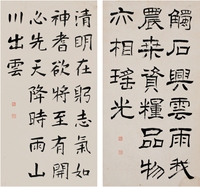 觸石興雲雨我
農桒資糧品物
亦相瑤光
清明在躬志氣如
神耆欲將至有開
必先天降時雨山
川出雲